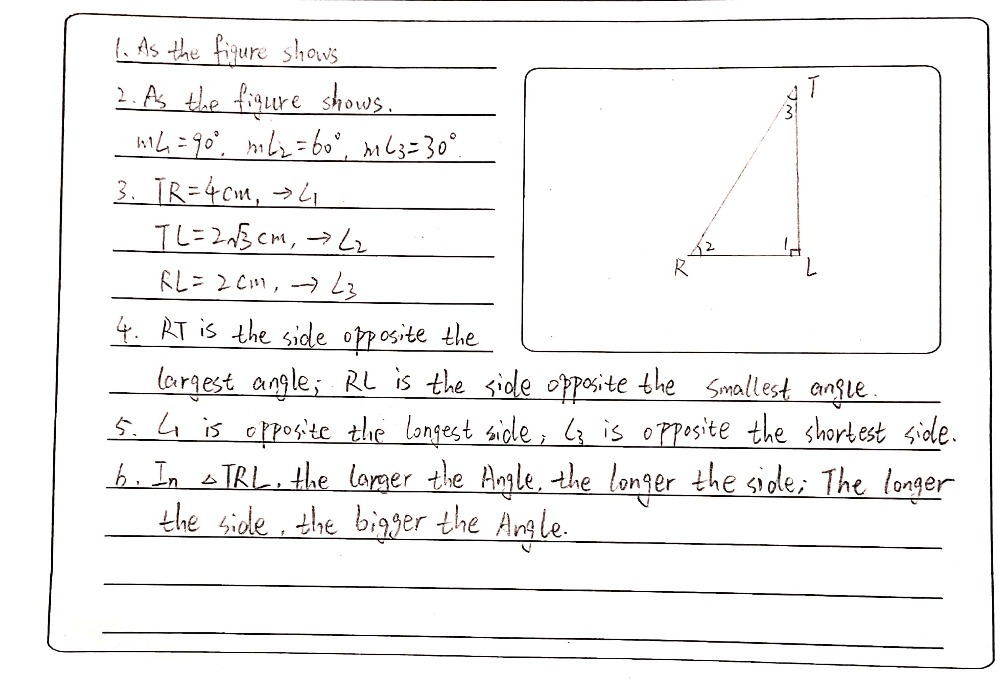 1. As the figure shows
2. As the figure shows.
m∠1=90°, m∠2=60°, m∠3=30°.
3. TR=4cm, →∠1
TL=2√3cm, →∠2
RL=2cm, →∠3
4. RT is the side opposite the
largest angle; RL is the side opposite the smallest angle.
5. ∠1 is opposite the longest side; ∠3 is opposite the shortest side.
6. In △TRL, the larger the Angle, the longer the side; The longer
the side, the bigger the Angle.
T
3
R
2
1
L